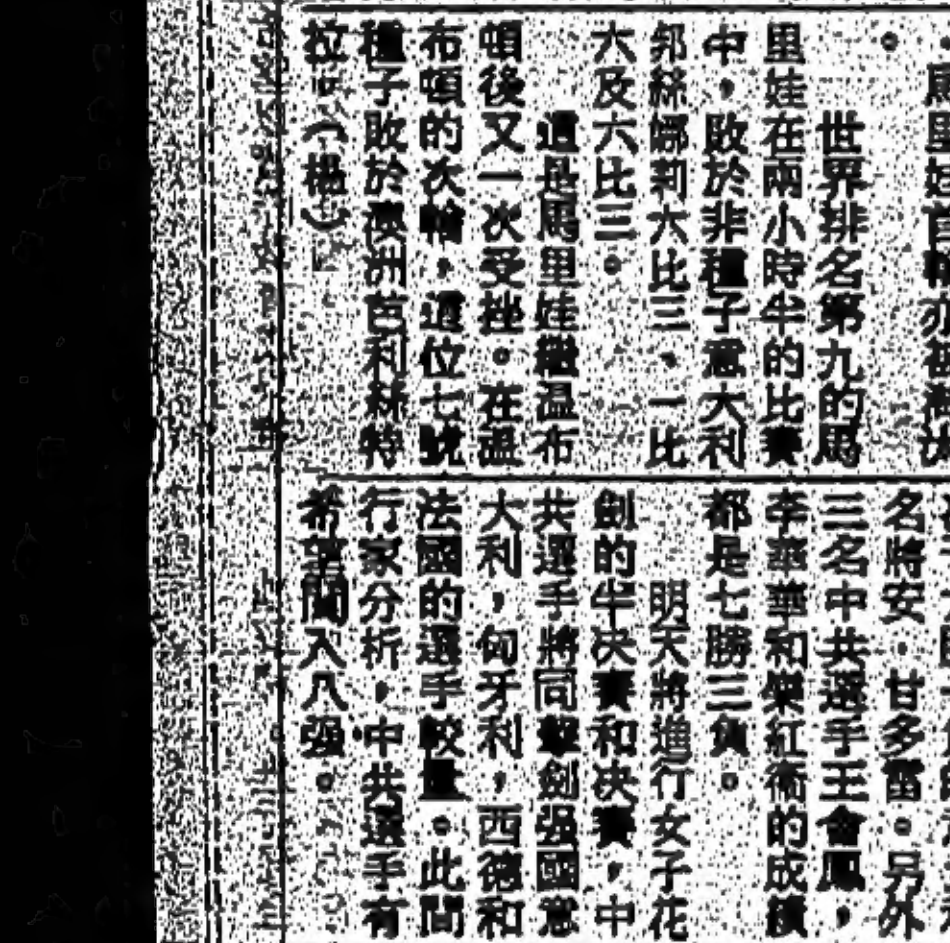 世界排名第九的馬
里娃在兩小時半的比賽
中，敗於非種子意大利
邦絲娜利六比三、一比
六及六比三。
這是馬里娃繼温布
頓後又一次受挫。在温
布頓的次輪，這位七號
種子敗於澳洲芭利絲特
拉。（楊）
名將安·甘多雷。另外
三名中共選手王會鳳，
李華華和樂紅衞的成績
都是七勝三負。
明天將進行女子花
劍的半決賽和決賽，中
共選手將同擊劍强國意
大利，匈牙利，西德和
法國的選手較量。此間
行家分析，中共選手有
希望闖入八强。